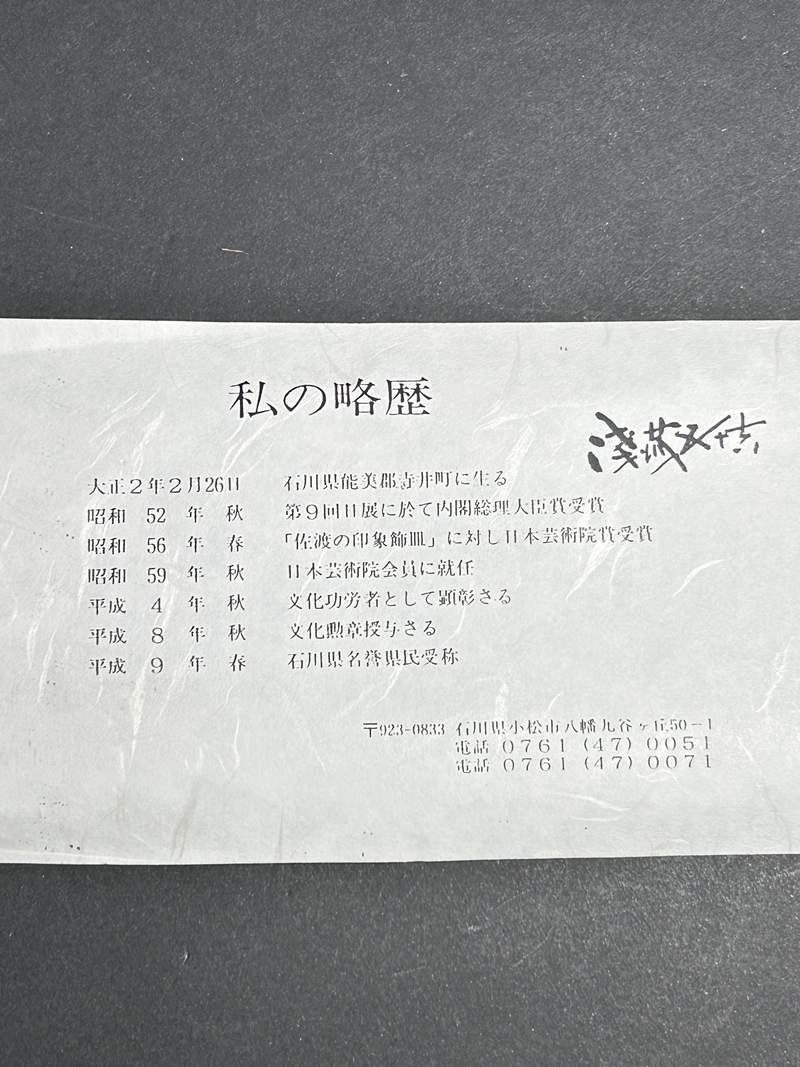 私の略歴
浅蔵五十吉
大正2年2月26日 石川県能美郡寺井町に生る
昭和 52 年 秋 第9回日展に於て内閣総理大臣賞受賞
昭和 56 年 春 「佐渡の印象飾皿」に対し日本芸術院賞受賞
昭和 59 年 秋 日本芸術院会員に就任
平成 4 年 秋 文化功労者として顕彰さる
平成 8 年 秋 文化勲章授与さる
平成 9 年 春 石川県名誉県民受称
〒923-0833 石川県小松市八幡九谷ヶ丘50−1
電話 0761 (47) 0051
電話 0761 (47) 0071